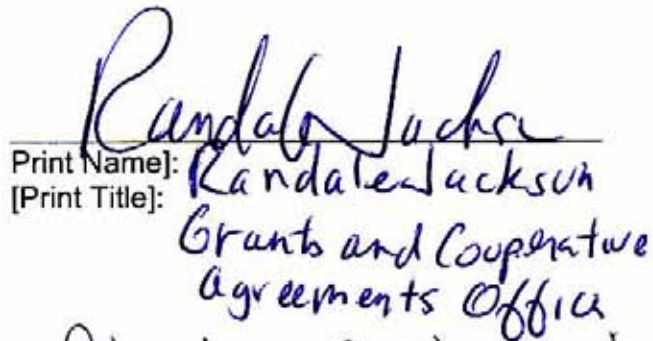 Randale Jackson
Print Name]: Randale Jackson
[Print Title]:
Grants and Cooperative
agreements Office